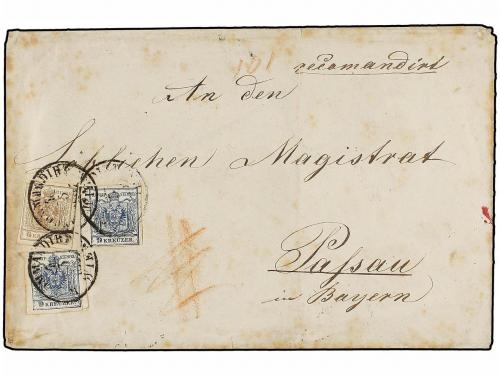 101
recomandirt
An den
Löblichen Magistrat
Passau
in Bayern
9 KREUZER
9 KREUZER